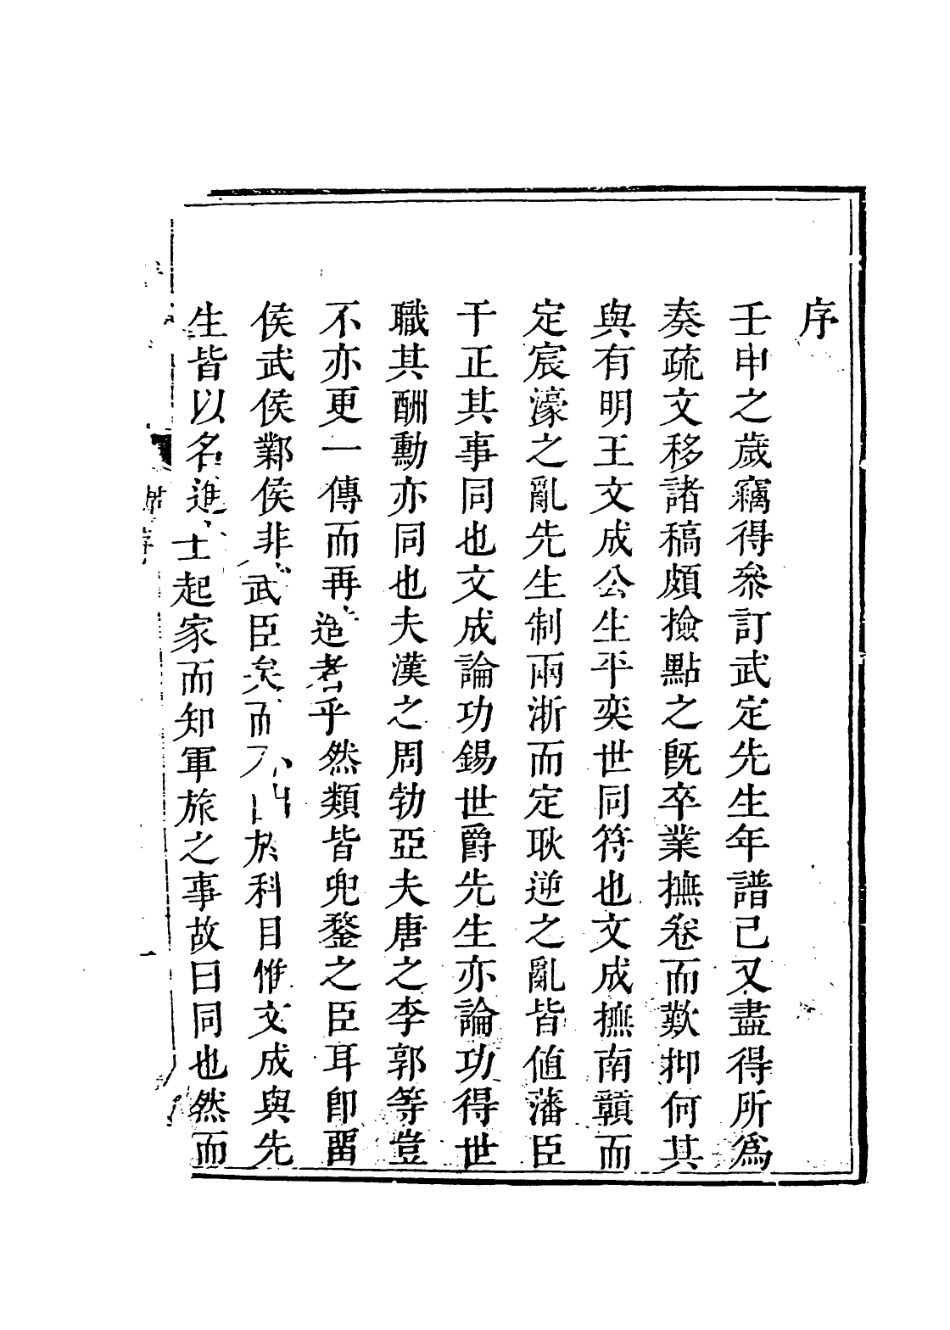 序
壬申之歲竊得叅訂武定先生年譜己又盡得所爲
奏疏文移諸稿頗撿點之旣卒業撫卷而歎抑何其
與有明王文成公生平奕世同符也文成撫南贛而
定宸濠之亂先生制兩浙而定耿逆之亂皆值藩臣
干正其事同也文成論功錫世爵先生亦論功得世
職其酬勳亦同也夫漢之周勃亞夫唐之李郭等豈
不亦更一傳而再造者乎然類皆兜鍪之臣耳卽留
侯武侯鄴侯非武臣矣而不由於科目惟文成與先
生皆以名進士起家而知軍旅之事故曰同也然而